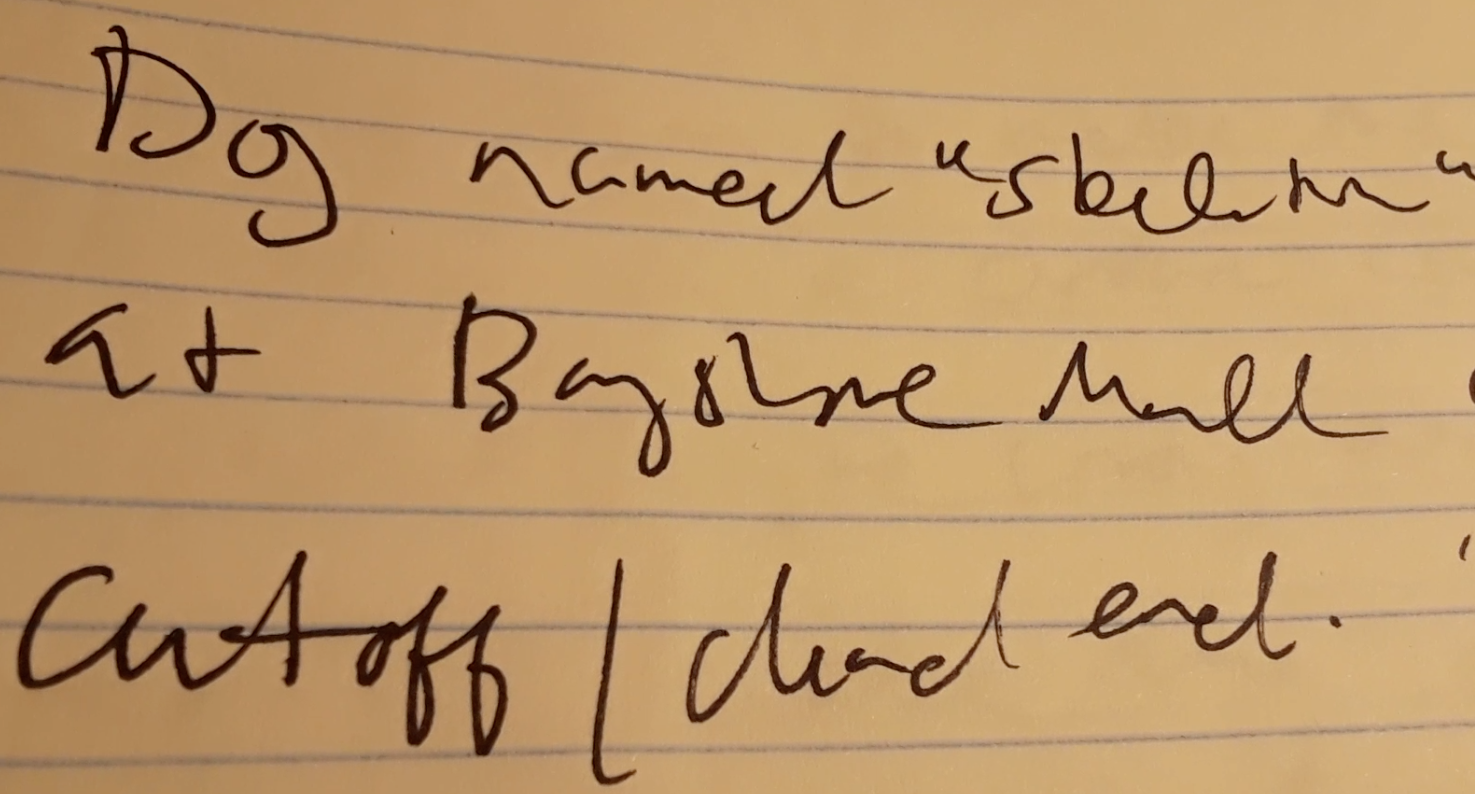 Dog named "skeleton"
at Bayshore Mall
Cutoff / dead end.